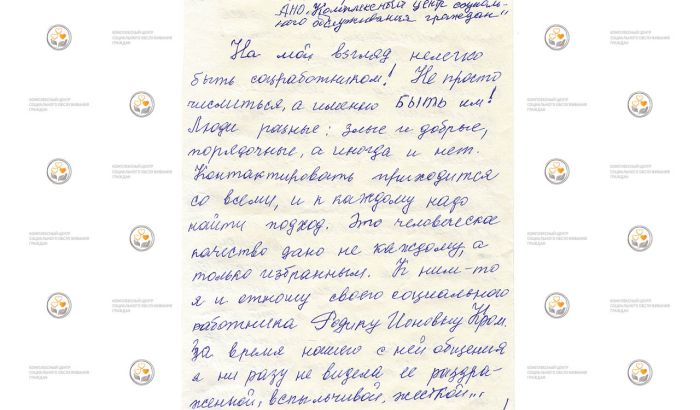 АНО „Комплексный центр социаль-
ного обслуживания граждан"
На мой взгляд нелегко
быть соцработником! Не просто
числиться, а именно БЫТЬ им!
Люди разные: злые и добрые,
порядочные, а иногда и нет.
Контактировать приходится
со всеми, и к каждому надо
найти подход. Это человеческое
качество дано не каждому, а
только избранным. К ним-то
я и отношу своего социального
работника Ионовну
За время нашего с ней общения
я ни разу не видела ее раздра-
женной, вспыльчивой, жесткой...
КОМПЛЕКСНЫЙ ЦЕНТР
СОЦИАЛЬНОГО ОБСЛУЖИВАНИЯ
ГРАЖДАН
КОМПЛЕКСНЫЙ ЦЕНТР
СОЦИАЛЬНОГО ОБСЛУЖИВАНИЯ
ГРАЖДАН
КОМПЛЕКСНЫЙ ЦЕНТР
СОЦИАЛЬНОГО ОБСЛУЖИВАНИЯ
ГРАЖДАН
КОМПЛЕКСНЫЙ ЦЕНТР
СОЦИАЛЬНОГО ОБСЛУЖИВАНИЯ
ГРАЖДАН
КОМПЛЕКСНЫЙ ЦЕНТР
СОЦИАЛЬНОГО ОБСЛУЖИВАНИЯ
ГРАЖДАН
КОМПЛЕКСНЫЙ ЦЕНТР
СОЦИАЛЬНОГО ОБСЛУЖИВАНИЯ
ГРАЖДАН